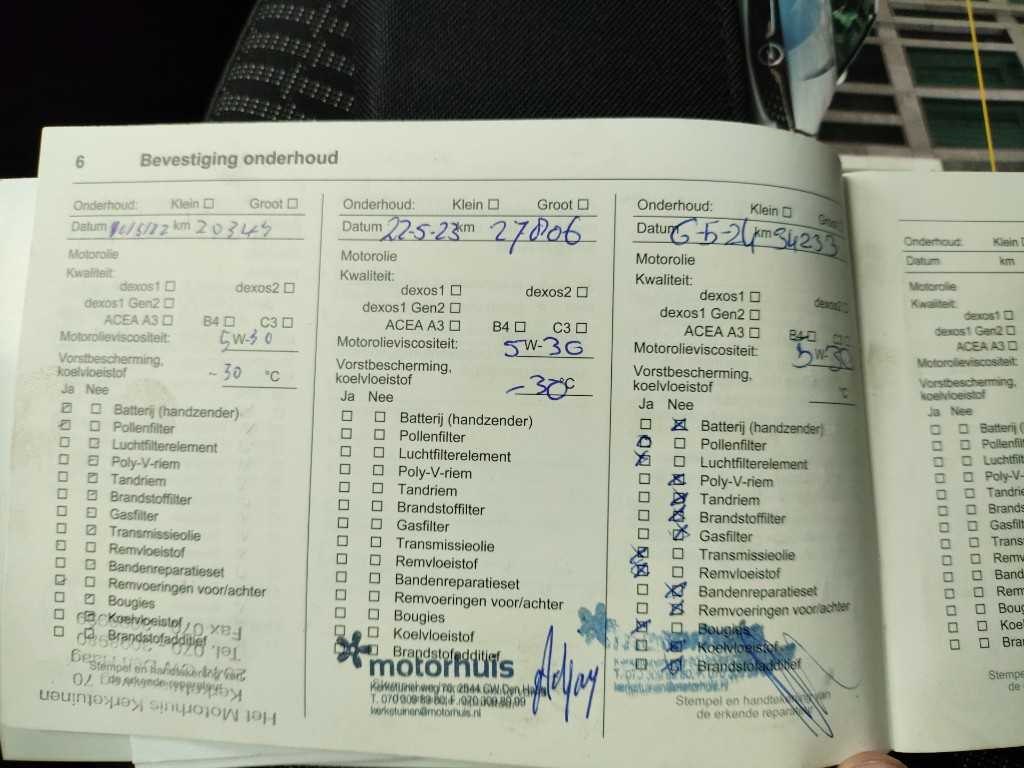 6 Bevestiging onderhoud
Onderhoud: Klein ☐ Groot ☐
Datum km 20345
Motorolie
Kwaliteit:
dexos1 ☐ dexos2 ☐
dexos1 Gen2 ☐
ACEA A3 ☐ B4 ☐ C3 ☐
Motorolieviscositeit: 5W-30
Vorstbescherming,
koelvloeistof -30 °C
Ja Nee
Batterij (handzender)
Pollenfilter
Luchtfilterelement
Poly-V-riem
Tandriem
Brandstoffilter
Gasfilter
Transmissieolie
Remvloeistof
Bandenreparatieset
Remvoeringen voor/achter
Bougies
Koelvloeistof
Brandstofadditief
Stempel en handtekening van
de erkende reparateur
Het Motorhuis Kerketuinen
Onderhoud: Klein ☐ Groot ☐
Datum 22-5-23 km 27806
Motorolie
Kwaliteit:
dexos1 ☐ dexos2 ☐
dexos1 Gen2 ☐
ACEA A3 ☐ B4 ☐ C3 ☐
Motorolieviscositeit: 5W-30
Vorstbescherming,
koelvloeistof -30°C
Ja Nee
Batterij (handzender)
Pollenfilter
Luchtfilterelement
Poly-V-riem
Tandriem
Brandstoffilter
Gasfilter
Transmissieolie
Remvloeistof
Bandenreparatieset
Remvoeringen voor/achter
Bougies
Koelvloeistof
Brandstofadditief
motorhuis
Kerketuinenweg 70, 2544 CW Den Haag
kerketuinen@motorhuis.nl
Onderhoud: Klein ☐ Groot ☐
Datum 6-5-24 km 34233
Motorolie
Kwaliteit:
dexos1 ☐ dexos2 ☐
dexos1 Gen2 ☐
ACEA A3 ☐ B4 ☐
Motorolieviscositeit: 5W-30
Vorstbescherming,
koelvloeistof °C
Ja Nee
Batterij (handzender)
Pollenfilter
Luchtfilterelement
Poly-V-riem
Tandriem
Brandstoffilter
Gasfilter
Transmissieolie
Remvloeistof
Bandenreparatieset
Remvoeringen voor/achter
Bougies
Koelvloeistof
Brandstofadditief
kerketuinen@motorhuis.nl
Stempel en handtekening van
de erkende reparateur
Onderhoud: Klein
Datum km
Motorolie
Kwaliteit:
dexos1 ☐
dexos1 Gen2 ☐
ACEA A3 ☐
Motorolieviscositeit:
Vorstbescherming,
koelvloeistof
Ja Nee
Batterij (
Pollenfilt
Luchtfilt
Poly-V-
Tandri
Brands
Gasfilt
Trans
Remv
Band
Rem
Boug
Koel
Bra
Stempel
de